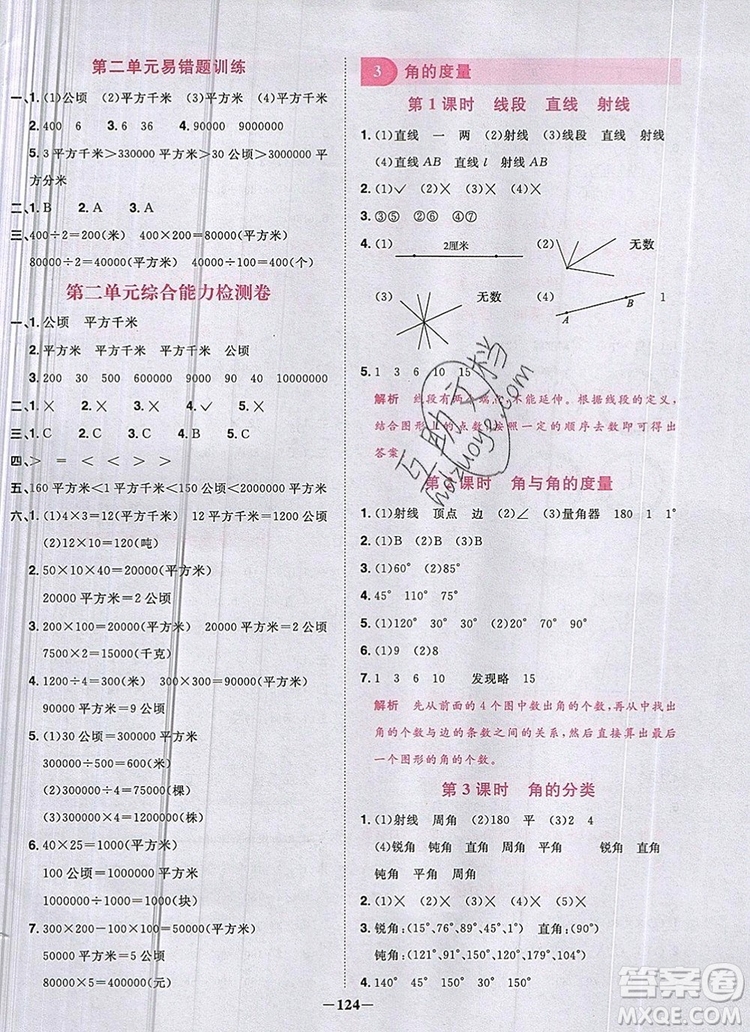 第二单元易错题训练
一、1.(1)公顷 (2)平方千米 (3)平方米 (4)平方千米
2.400 6 3.6 36 4.90000
5.3平方千米>330000平方米>30公顷>3000平
方分米
二、1.B 2.A 3.A 4.B
三、400÷2=200(米) 400×200=80000(平方米)
80000÷2=40000(平方米) 40000÷100=400(个)
第二单元综合能力检测卷
一、1.公顷 平方千米
2.平方千米 平方米 公顷 平方米
3.200 30 500 900000 10000 1000000
二、1.× 2.× 3.× 4.×
三、1.C 2.B 3.A 4.B
四、> = < > <
五、160平方米<1平方千米<150公顷<2000平方千米
六、1.(1)4×3=12(平方千米) 12平方千米=1200公顷
(2)12×10=120(吨)
2.50×10×40=20000(平方米)
20000平方米=2公顷
3.200×100=20000(平方米) 20000平方米=2公顷
7500×2=15000(千克)
4.1200÷4=300(米) 300×300=90000(平方米)
90000平方米=9公顷
5.(1)30公顷=300000平方米
300000÷500=600(平方米)
(2)300000÷4=75000(棵)
(3)300000÷1=300000(株)
6.40×25=1000(平方米)
100公顷=1000000平方米
1000000÷1000=1000(块)
7.300×200-100×100=50000(平方米)
50000平方米=5公顷
80000×5=400000(元)
3 角的度量
第1课时 线段 直线 射线
1.(1)直线 一 两 (2)射线 (3)线段 直线 射线
(4)直线AB 直线l 射线AB
2.(1)✓ (2)× (3)×
3.③⑤ ②⑥ ①④
4.(1) 2厘米 (2) 无数
(3) 无数 (4) A B 1
5.1 3 6 10 15
解析 线段有两端点,不能延伸。根据线段的定义,
结合图形上的点数,按照一定的顺序去数即可得出
答案
第 课时 角与角的度量
1.(1)射线 顶点 边 (2)∠ (3)量角器 180 1 1°
2.(1)B (2)B (3)B
3.(1)60° (2)90°
4.45° 110° 70°
5.(1)120° (2)30° (3)135° (4)90°
6.(1)9 (2)8
7.1 3 6 10 发现略 15
解析 先从前面的4个图中数出角的个数,再从中找出
角的个数与边的条数之间的关系,然后据此推出最后
一个图形的角的个数。
第3课时 角的分类
1.(1)射线 周角 (2)180 平 (3)2 4
(4)锐角 钝角 直角 锐角 周角 平角
钝角 锐角
2.(1)× (2)× (3)× (4)× (5)×
3.锐角:(15°、76°、89°、45°、56°) 直角:(90°)
钝角:(121°、91°、146°、179°、104°)
4.140° 50° 15° 5.45° 135° 45°
互助文档
huzhuoye.com
答案圈
MXQE.COM
—124—